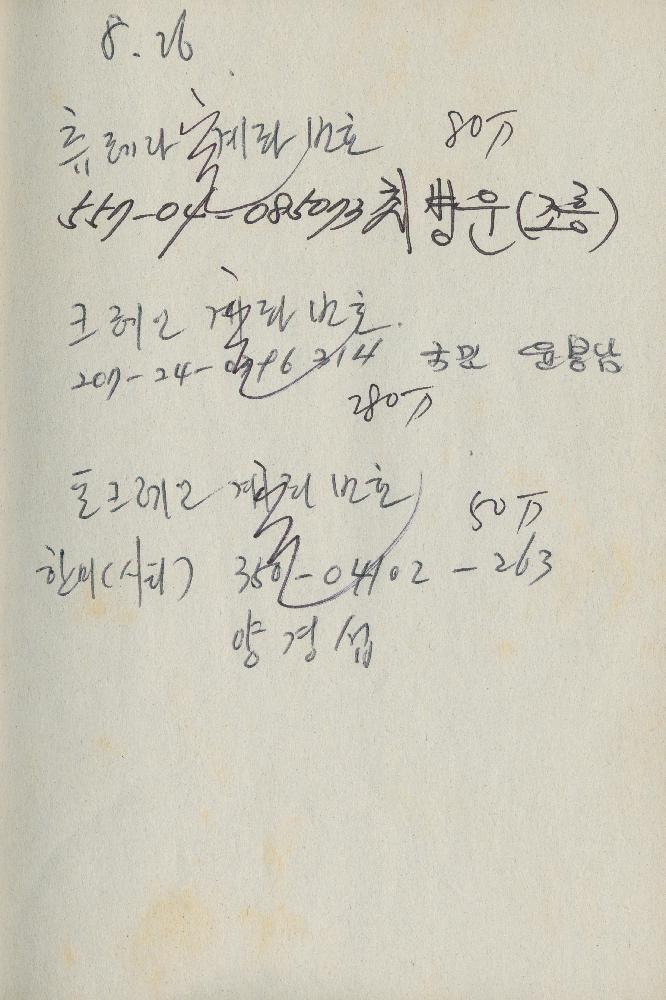 8.26
계좌 번호 80万
557-04-085073 최 운(조흥)
크레인 계좌 번호.
207-24- 214 국민 윤봉남
280万
크레인 계좌 번호 50万
한미(시티) - 04102 - 263
양경섭